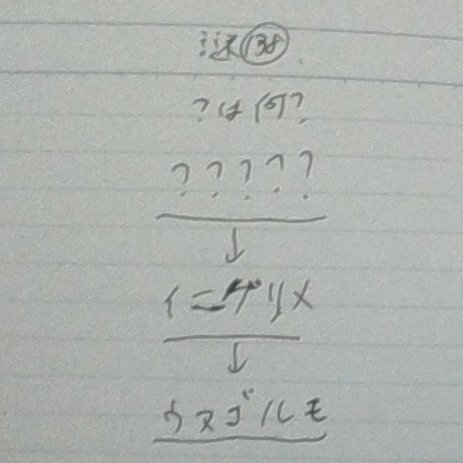 謎138
?は何?
?????
↓
イニゲリメ
↓
ウヌゴルモ